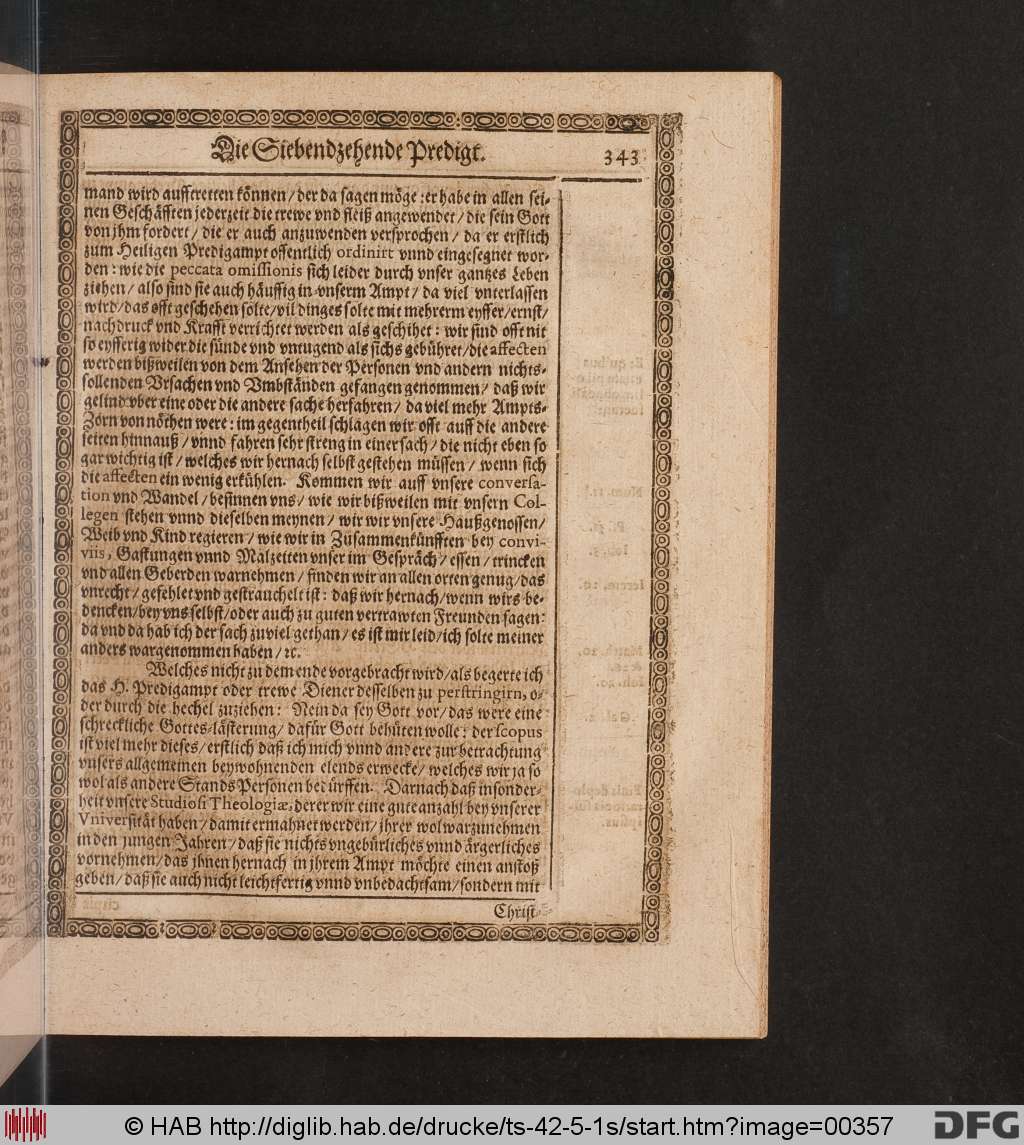 Die Siebendzehende Predigt. 343
mand wird aufftretten können / der da sagen möge : er habe in allen sei-
nen Geschäfften jederzeit die trewe vnd fleiß angewendet / die sein Gott
von jhm fordert / die er auch anzuwenden versprochen / da er erstlich
zum Heiligen Predigampt offentlich ordinirt vnnd eingesegnet wor-
den : wie die peccata omissionis sich leider durch vnser gantzes Leben
ziehen / also sind sie auch häuffig in vnserm Ampt / da viel vnterlassen
wird / das offt geschehen solte / vil dinges solte mit mehrerm eyffer / ernst /
nachdruck vnd Krafft verrichtet werden als geschihet : wir sind offt nit
so eyfferig wider die sünde vnd vntugend als sichs gebühret / die affecten
werden bißweilen von dem Ansehen der Personen vnd andern nichts-
sollenden Vrsachen vnd Vmbständen gefangen genommen / daß wir
gelind vber eine oder die andere sache herfahren / da viel mehr Ampts-
Zorn von nöthen were : im gegentheil schlagen wir offt auff die andere
seiten hinnauß / vnnd fahren sehr streng in einer sach / die nicht eben so
gar wichtig ist / welches wir hernach selbst gestehen müssen / wenn sich
die affecten ein wenig erkühlen. Kommen wir auff vnsere conversa-
tion vnd Wandel / besinnen vns / wie wir bißweilen mit vnsern Col-
legen stehen vnnd dieselben meynen / wir wir vnsere Haußgenossen /
Weib vnd Kind regieren / wie wir in Zusammenkünfften bey convi-
viis, Gastungen vnnd Malzeiten vnser im Gespräch / essen / trincken
vnd allen Geberden warnehmen / finden wir an allen orten genug / das
vnrecht / gefehlet vnd gestrauchelt ist : daß wir hernach / wenn wirs be-
dencken / bey vns selbst / oder auch zu guten vertrawten Freunden sagen:
da vnd da hab ich der sach zuviel gethan / es ist mir leid / ich solte meiner
anders wargenommen haben / ꝛc.
Welches nicht zu dem ende vorgebracht wird / als begerte ich
das H. Predigampt oder trewe Diener desselben zu perstringirn, o-
der durch die hechel zuziehen : Nein da sey Gott vor / das were eine
schreckliche Gottes-lästerung / dafür Gott behüten wolle : der scopus
ist viel mehr dieses / erstlich daß ich mich vnnd andere zur betrachtung
vnsers allgemeinen beywohnenden elends erwecke / welches wir ja so
wol als andere Stands Personen bedürffen. Darnach daß insonder-
heit vnsere Studiosi Theologiæ, derer wir eine gute anzahl bey vnserer
Vniversität haben / damit ermahnet werden / jhrer wol warzunehmen
in den jungen Jahren / daß sie nichts vngebürliches vnnd ärgerliches
vornehmen / das jhnen hernach in jhrem Ampt möchte einen anstoß
geben / daß sie auch nicht leichtfertig vnnd vnbedachtsam / sondern mit
Christ-
© HAB http://diglib.hab.de/drucke/ts-42-5-1s/start.htm?image=00357
DFG